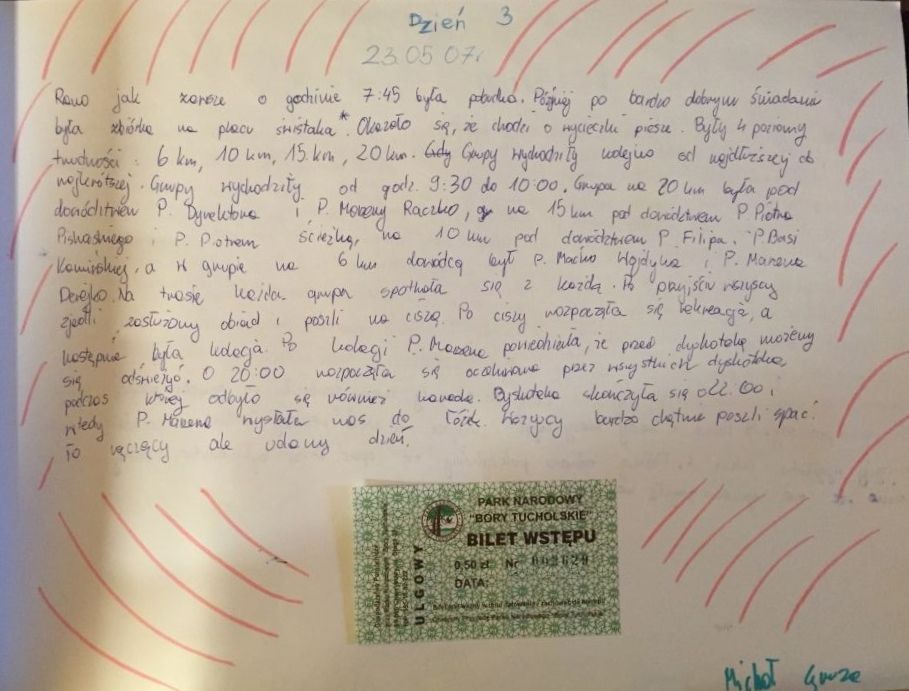 Dzień 3
23.05.07r
Rano jak zawsze o godzinie 7:45 była pobudka. Później po bardzo dobrym śniadaniu
była zbiórka na placu świstaka*. Okazało się, że chodzi o wycieczki piesze. Były 4 poziomy
trudności: 6 km, 10 km, 15 km, 20 km. Gdy Grupy wychodziły kolejno od najdłuższej do
najkrótszej. Grupy wychodziły od godz. 9:30 do 10:00. Grupa na 20 km była pod
dowództwem P. Dyrektora i P. Moreny Raczko, na 15 km pod dowództwem P. Piotra
i P. Piotrem Ścieżką, na 10 km pod dowództwem P. Filipa. P. Basi
Kamińskiej, a w grupie na 6 km dowódcą był P. Maćko Wojdyka i P. Marena
Derejko. Na trasie każda grupa spotkała się z każdą. Po przyjściu wszyscy
zjedli zasłużony obiad i poszli na ciszę. Po ciszy rozpoczęła się rekreacja, a
następnie była kolacja. Po kolacji P. Morena powiedziała, że przed dyskoteką możemy
się odświeżyć. O 20:00 rozpoczęła się oczekiwana przez wszystkich dyskoteka,
podczas której odbyło się również karaoke. Dyskoteka skończyła się o 22:00 i
wtedy P. Marena wysłała nas do łóżek. Wszyscy bardzo chętnie poszli spać.
To męczący ale udany dzień.
PARK NARODOWY
"BORY TUCHOLSKIE"
BILET WSTĘPU
ULGOWY
0,50 zł Nr 003629
DATA:
Michał